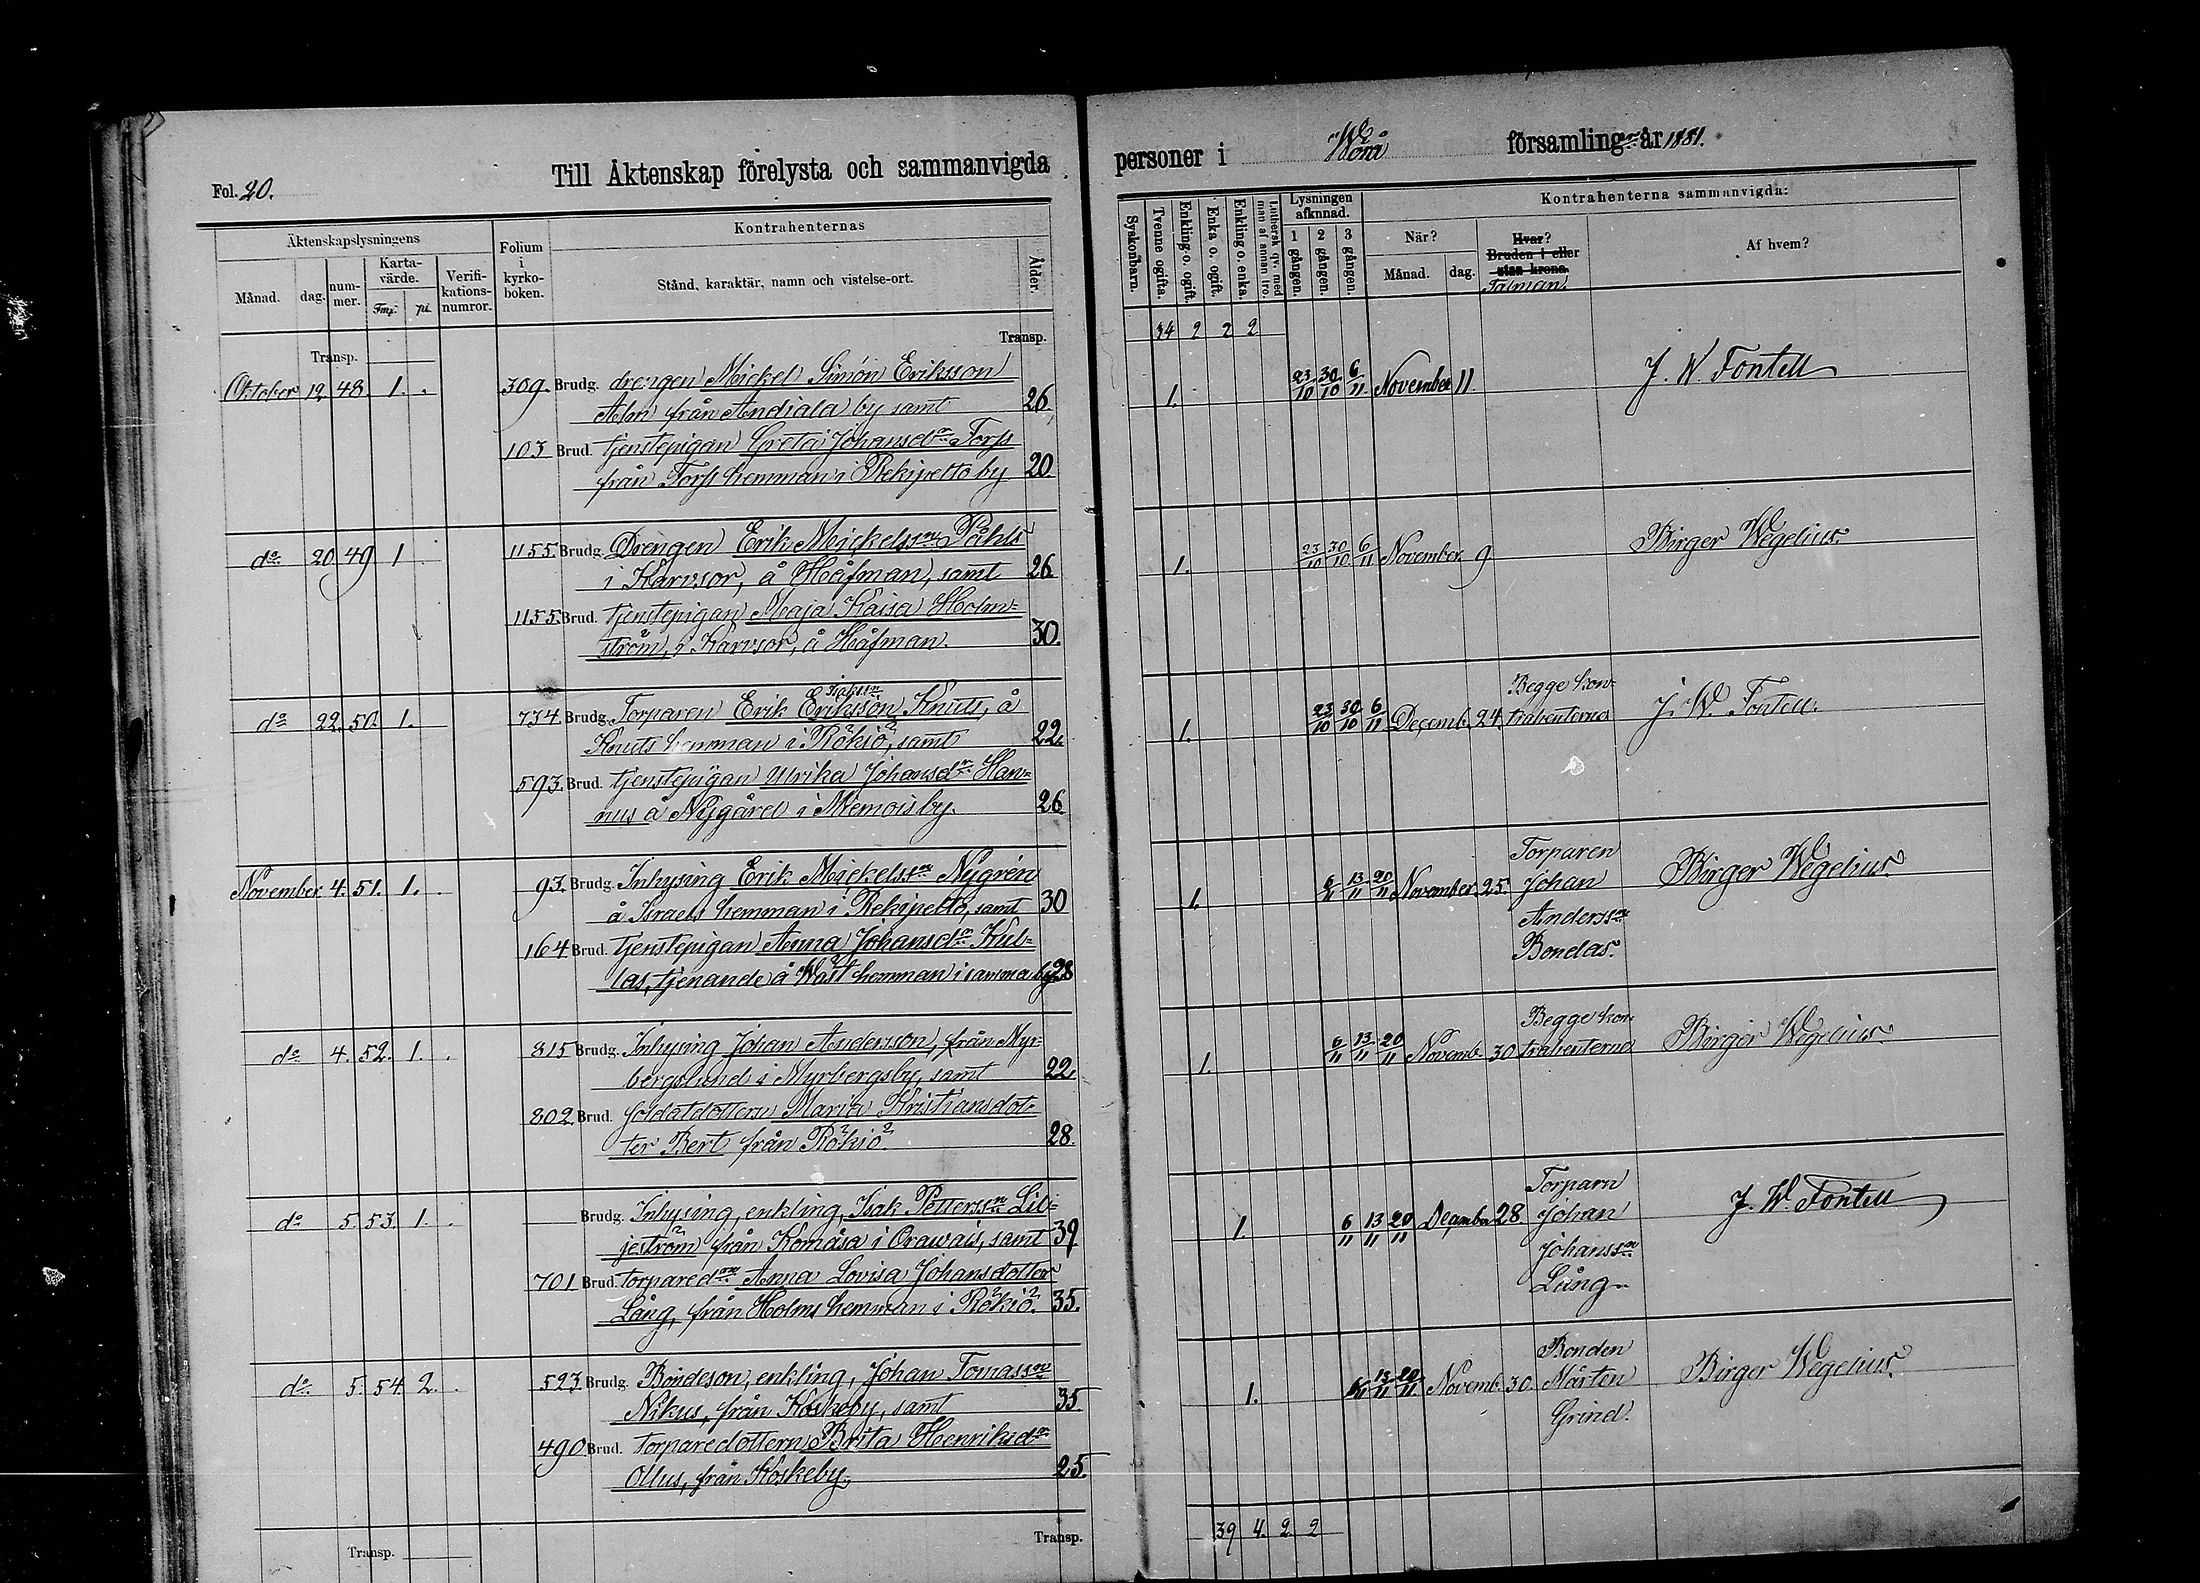 Fol. 20.
Till Äktenskap förelysta och sammanvigda
Äktenskapslysningens
Folium i kyrko-boken.
Kontrahenternas
Månad.
dag.
num-mer.
Karta-värde.
Fmk.
pi.
Verifi-kations-numror.
Stånd, karaktär, namn och vistelse-ort.
Ålder.
Transp.
Transp.
Oktober 19. 48. 1. . 309. Brudg. drengen Mickel Simon Eriksson
Alm från Andiala by samt 26
103 Brud. tjenstepigan Greta Johansdr Forss
från Forss hemman i Rekipelto by 20
do 20 49 1 1155. Brudg. Drengen Erik Mickelssn Påhls
i Karvsor, å Håfman, samt 26.
1155. Brud. tjenstepigan Maja Kaisa Holm-
ström, i Karvsor, å Håfman. 30.
Isakssn
do 22. 50. 1. 734. Brudg. Torparen Erik Eriksson Knuts, å
Knuts hemman i Rökiö, samt 22.
593. Brud. tjenstepigan Ulrika Johansdr Han-
nus å Nygård i Miemois by. 26.
November 4. 51. 1. . 93. Brudg. Inhysing Erik Mickelssn Nygrén
å Israels hemman i Rekipelto, samt 30
164 Brud. tjenstepigan Anna Johansdr Kul-
las, tjenande å Wäst hemman i samma by. 28
do 4. 52. 1. . 815 Brudg. Inhysing Johan Andersson, från Myr-
bergslund i Myrbergsby, samt 22.
802. Brud. Soldatdottern Maria Kristiansdot-
ter Bert från Rökiö. 28.
do 5. 53. 1. . Brudg. Inhysing, enkling, Isak Petterssn Lil-
jeström från Komåsa i Orawais, samt 39
701 Brud. torparedrn Anna Lovisa Johansdotter
Lång, från Holms hemman i Rökiö. 35.
do. 5. 54. 2. . 523. Brudg. Bondeson, enkling, Johan Tomassn
Nikus, från Koskeby, samt 35
490 Brud. torparedottern Brita Henriksdr
Ollus, från Koskeby. 25.
Transp.
Transp.
personer i Wörå församling år 1881.
Syskonbarn.
Tvenne ogifta.
Enkling o. ogift.
Enka o. ogift.
Enkling o. enka.
Luthersk qv. med man af annan tro.
Lysningen afkunnad.
1 gången.
2 gången.
3 gången.
Kontrahenterna sammanvigda:
När?
Månad.
dag.
Hvar?
Bruden i eller
utan krona.
Talman.
Af hvem?
34 2 2 2
1. 23/10 30/10 6/11. November 11. J. W. Fontell
1. 23/10 30/10 6/11 November 9 Birger Wegelius.
1. 23/10 30/10 6/11 Decemb. 24. Begge kon-
trahenterna J. W. Fontell.
1. 6/11 13/11 20/11 November. 25. Torparen
Johan
Anderssn
Bondas. Birger Wegelius.
1. 6/11 13/11 20/11 Novemb. 30 Begge kon-
trahenterna Birger Wegelius.
1. 6/11 13/11 20/11 December 28. Torparn
Johan
Johanssn
Lång. J. W. Fontell
1. 6/11 13/11 20/11. Novemb. 30. Bonden
Mårten
Grind. Birger Wegelius.
39 4. 2. 2